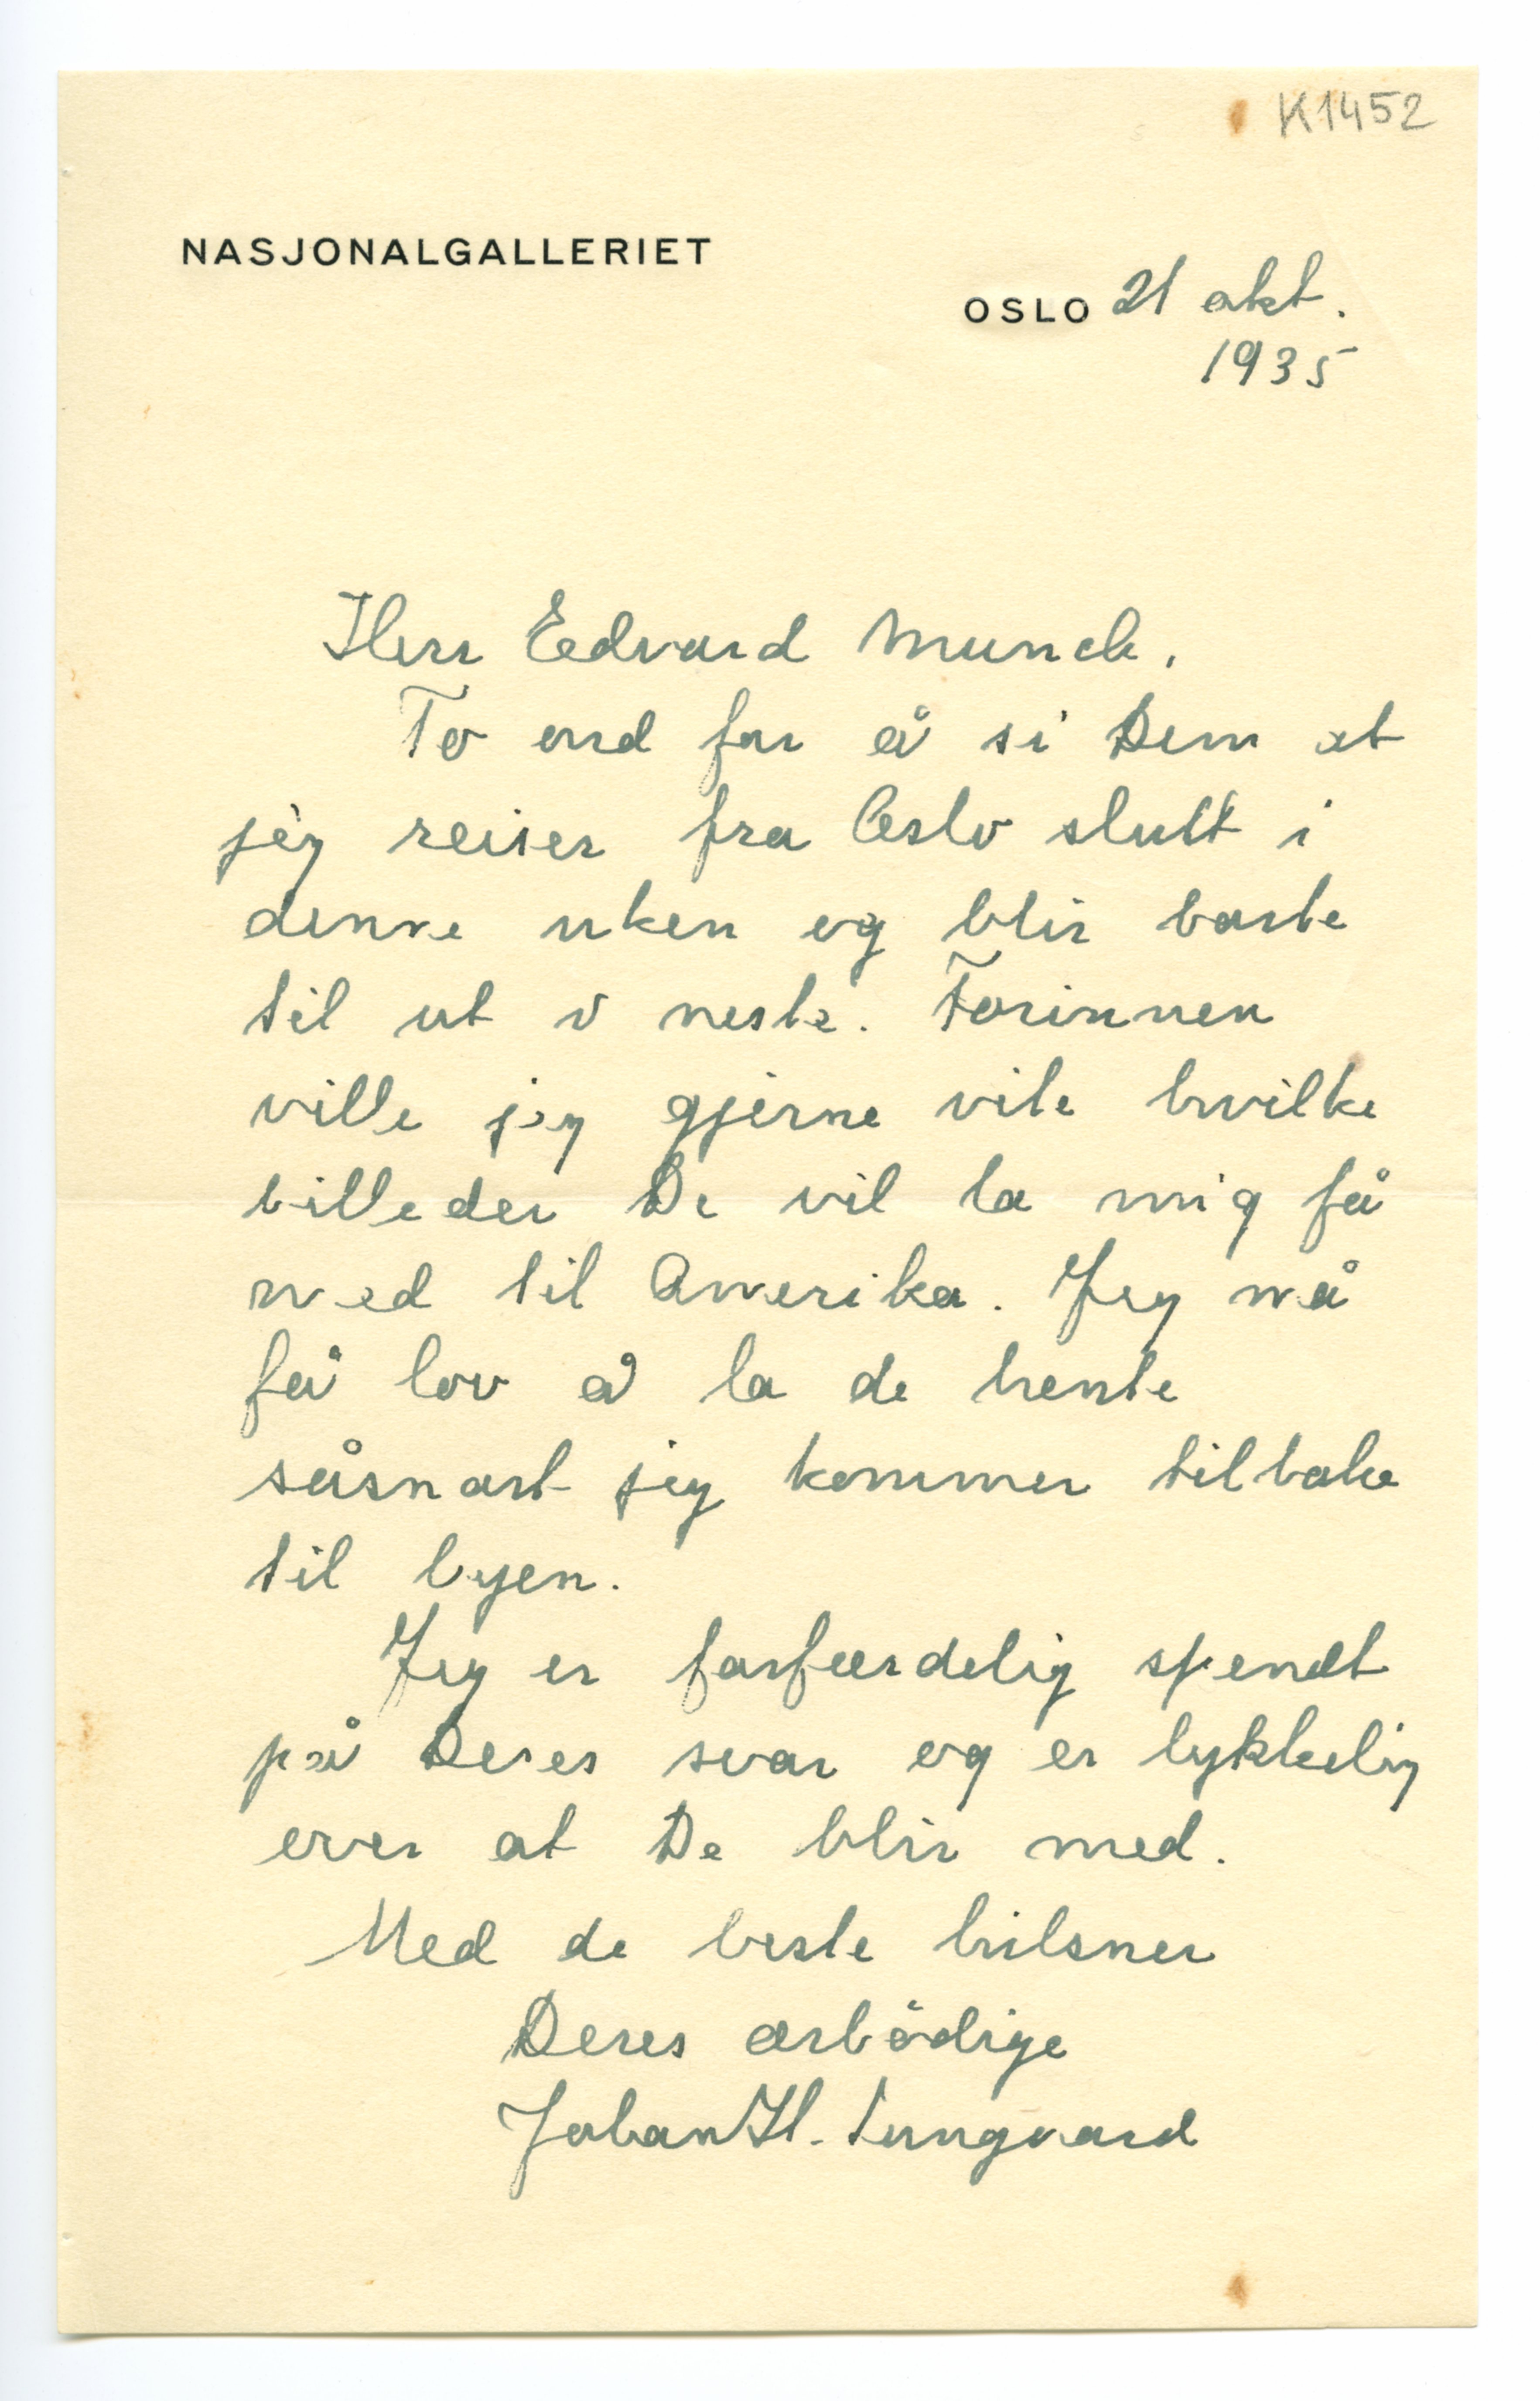 K1452
NASJONALGALLERIET
OSLO 21 okt.
1935
Herr Edvard Munch.
To ord for å si Dem at
jeg reiser fra Oslo slutt i
denne uken og blir borte
til ut i neste. Forinnen
ville jeg gjerne vite hvilke
billeder De vil la mig få
med til Amerika. Jeg må
få lov å la de hente
såsnart jeg kommer tilbake
til byen.
Jeg er forferdelig spendt
på Deres svar og er lykkelig
over at De blir med.
Med de beste hilsner
Deres ærbödige
Johan H. Langaard